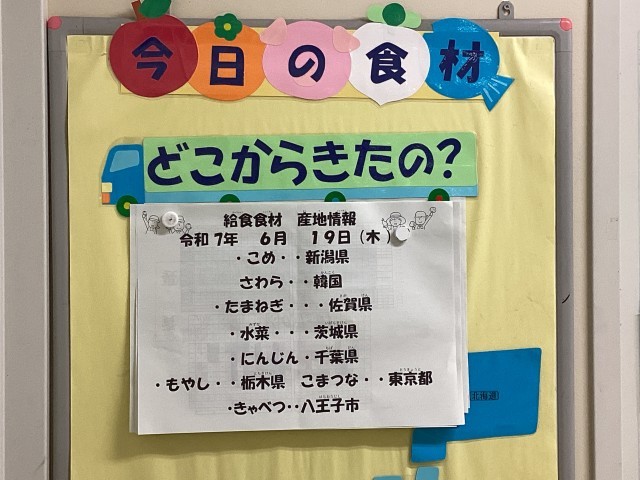 今日の食材
どこからきたの?
給食食材 産地情報
令和7年 6月 19日(木)
・こめ・・新潟県
さわら・・韓国
・たまねぎ・・・佐賀県
・水菜・・・茨城県
・にんじん・千葉県
・もやし・・栃木県 こまつな・・東京都
・きゃべつ・・八王子市
北海道